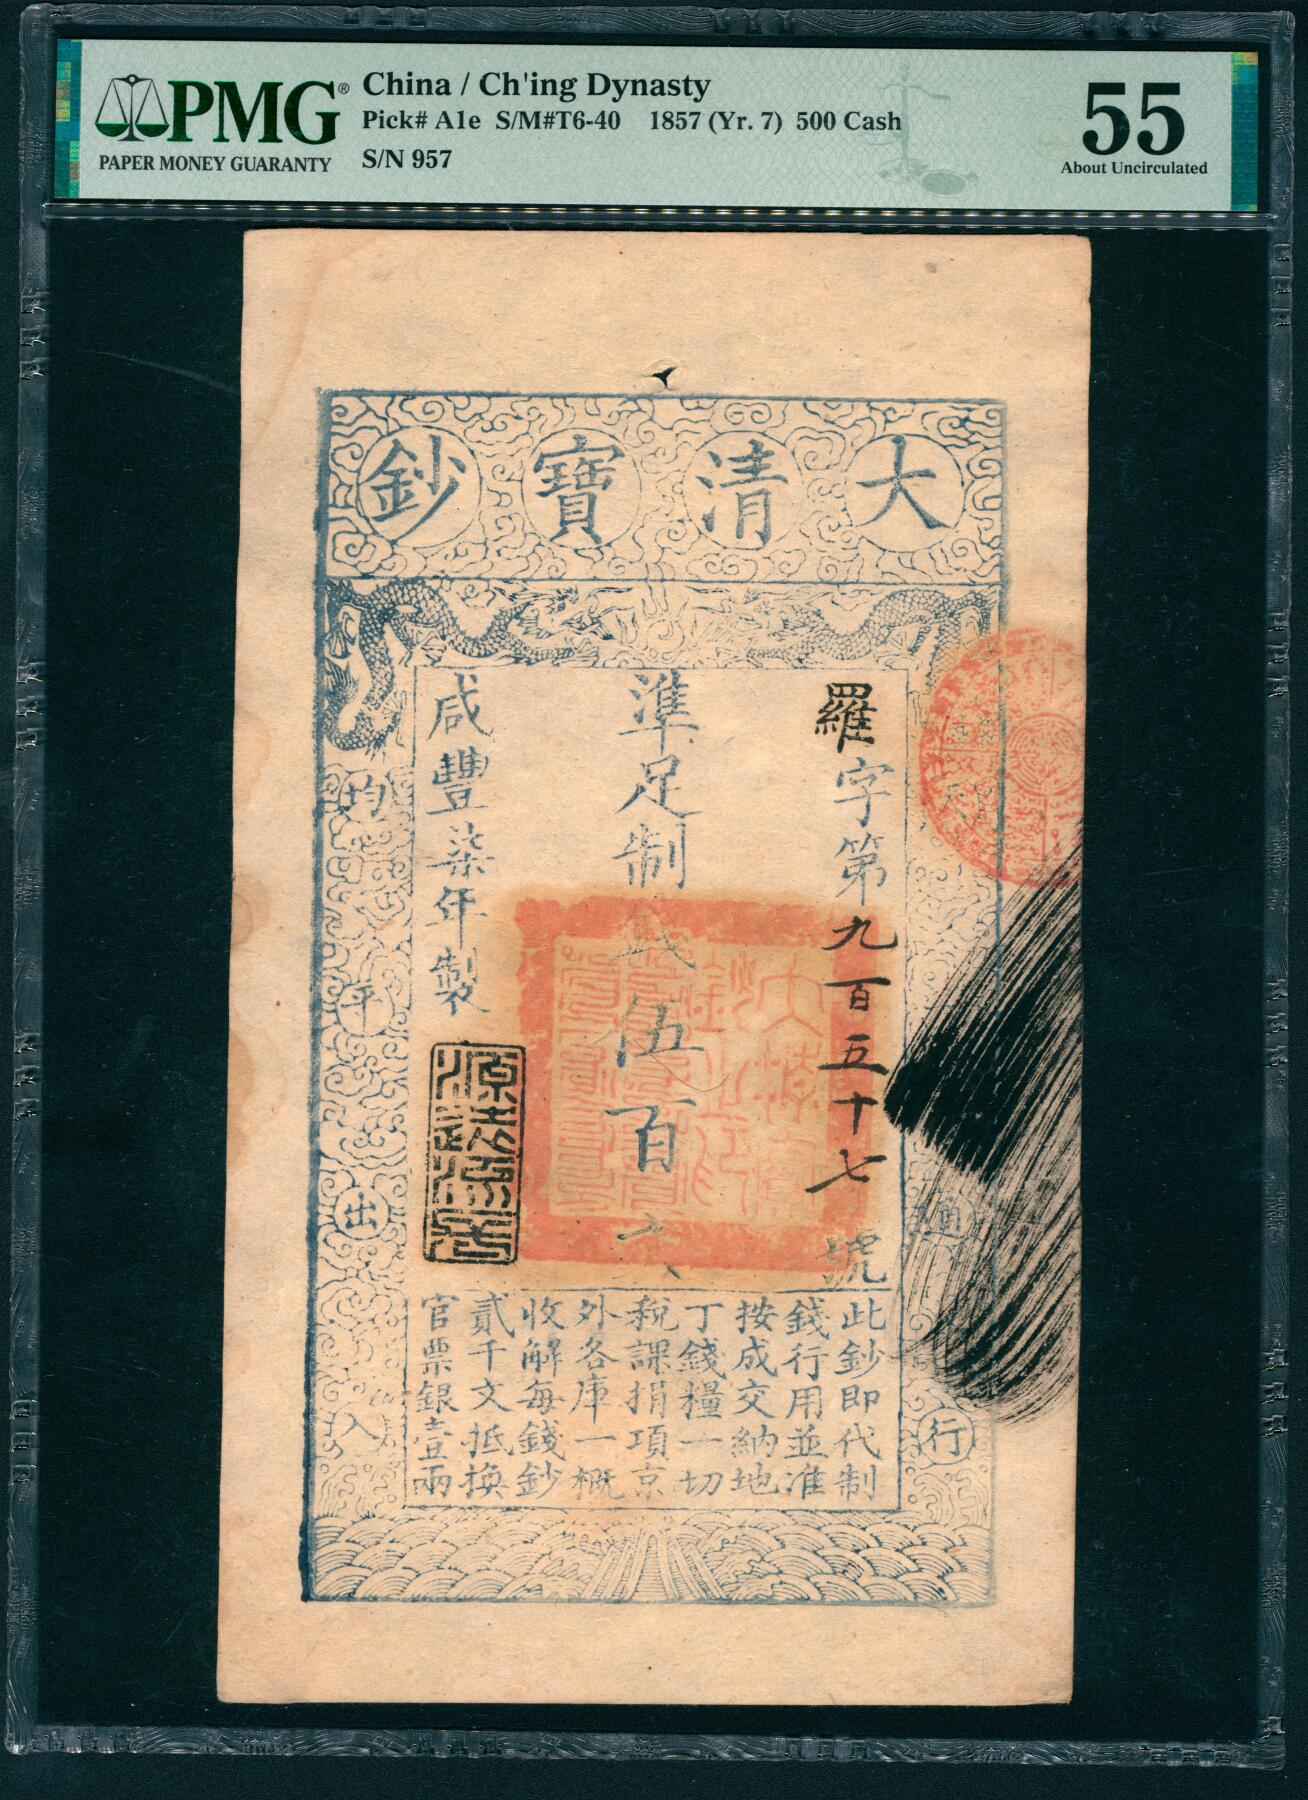 PMG®
PAPER MONEY GUARANTY
China / Ch'ing Dynasty
Pick# A1e S/M#T6-40 1857 (Yr. 7) 500 Cash
S/N 957
55
About Uncirculated
大清寶鈔
羅字第九百五十七號
準足制錢伍百文
咸豐柒年製
均平出入
行
此鈔即代制
錢行用並准
按成交納地
丁錢糧一切
稅課捐項京
外各庫一概
收解每錢鈔
貳千文抵換
官票銀壹兩